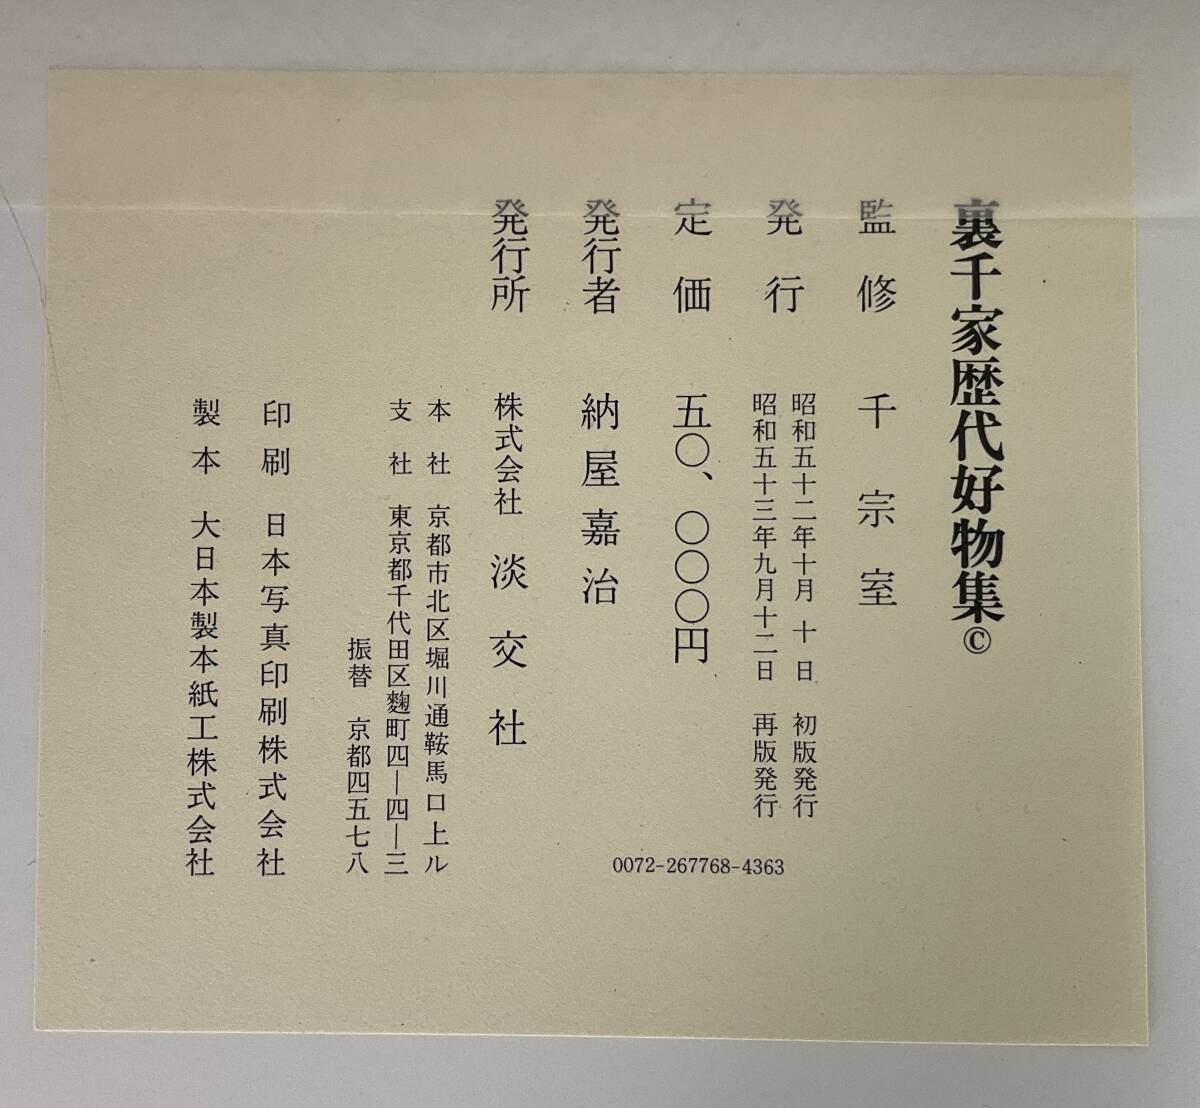 裏千家歴代好物集©
監修 千宗室
発行 昭和五十二年十月十日 初版発行
昭和五十三年九月十二日 再版発行
定価 五〇、〇〇〇円
発行者 納屋嘉治
発行所 株式会社 淡交社
本社 京都市北区堀川通鞍馬口上ル
支社 東京都千代田区麴町四―四―三
振替 京都四五七八
印刷 日本写真印刷株式会社
製本 大日本製本紙工株式会社
0072-267768-4363